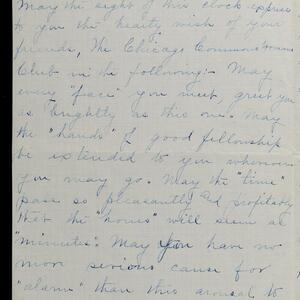 May the sight of this clock express
to you the hearty wish of your
friends, the Chicago Commons Womans
Club in the following:- May
every "face" you meet, greet you
as brightly as this one. May
the "hands" of good fellowship
be extended to you wherever
you may go. May the "time"
pass so pleasantly and profitably
that the "hours" will seem as
"minutes". May you have no
more serious cause for
"alarm" than this arousal to